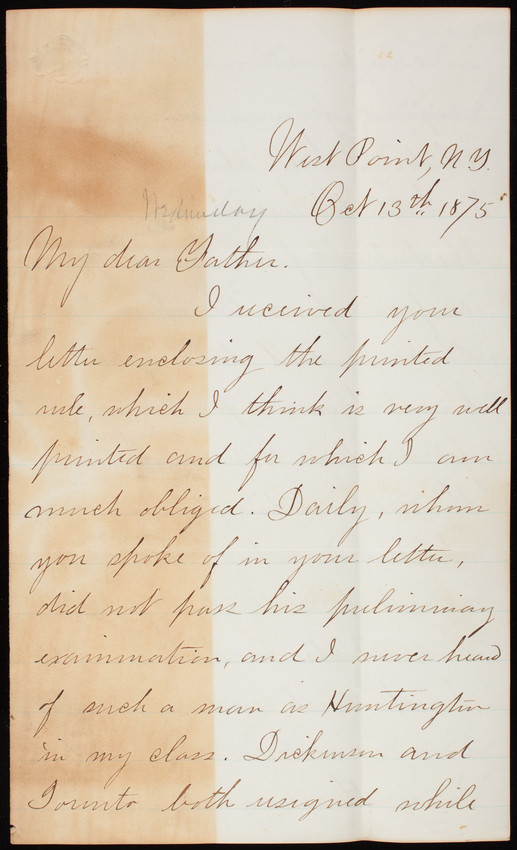 West Point, N.Y.
Wednesday Oct 13th. 1875
My dear Father.
I received your
letter enclosing the printed
rule, which I think is very well
printed and for which I am
much obliged. Daily, whom
you spoke of in your letter,
did not pass his preliminary
examination, and I never heard
of such a man as Huntington
in my class. Dickinson and
both resigned while